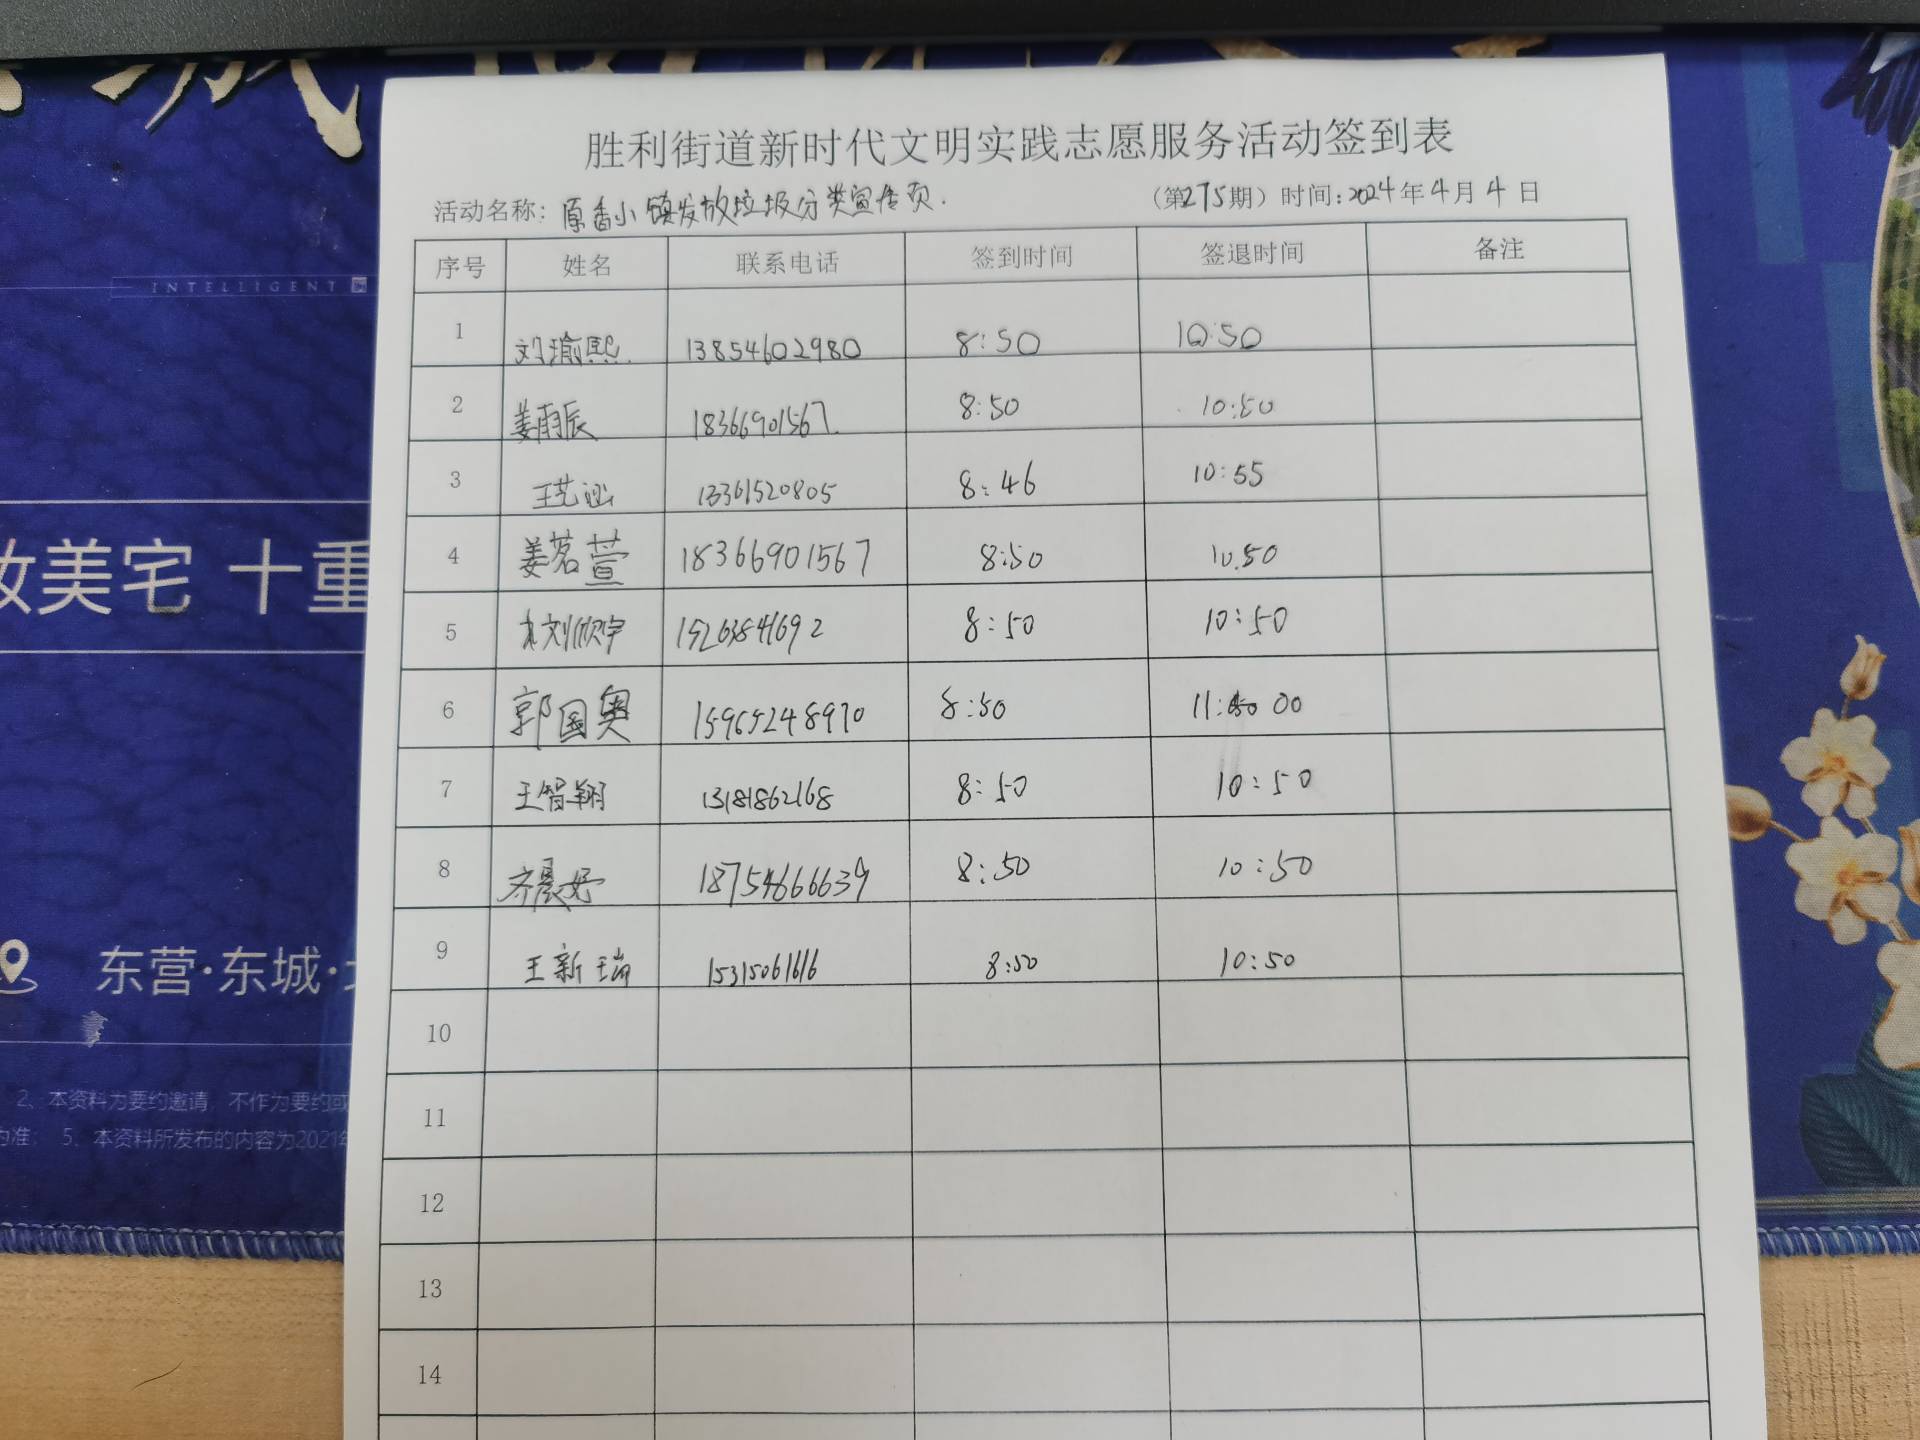 INTELLIGENT
美宅 十重
东营·东城·
2、本资料为要约邀请，不作为要约或
为准； 5、本资料所发布的内容为2021年
胜利街道新时代文明实践志愿服务活动签到表
活动名称：原香小镇发放垃圾分类宣传页. （第275期）时间：2024年4月4日
序号 姓名 联系电话 签到时间 签退时间 备注
1 刘瑜熙. 13854602980 8:50 10:50
2 姜雨辰 18366901567. 8:50 10:50
3 王艺涵 13361520805 8:46 10:55
4 姜茗萱 18366901567 8:50 10.50
5 刘欣宇 15263841692 8:50 10:50
6 郭国奥 15965248970 8:50 11:00
7 王智翔 13181862168 8:50 10:50
8 齐晨妤 18754666639 8:50 10:50
9 王新瑞 15315061616 8:50 10:50
10
11
12
13
14